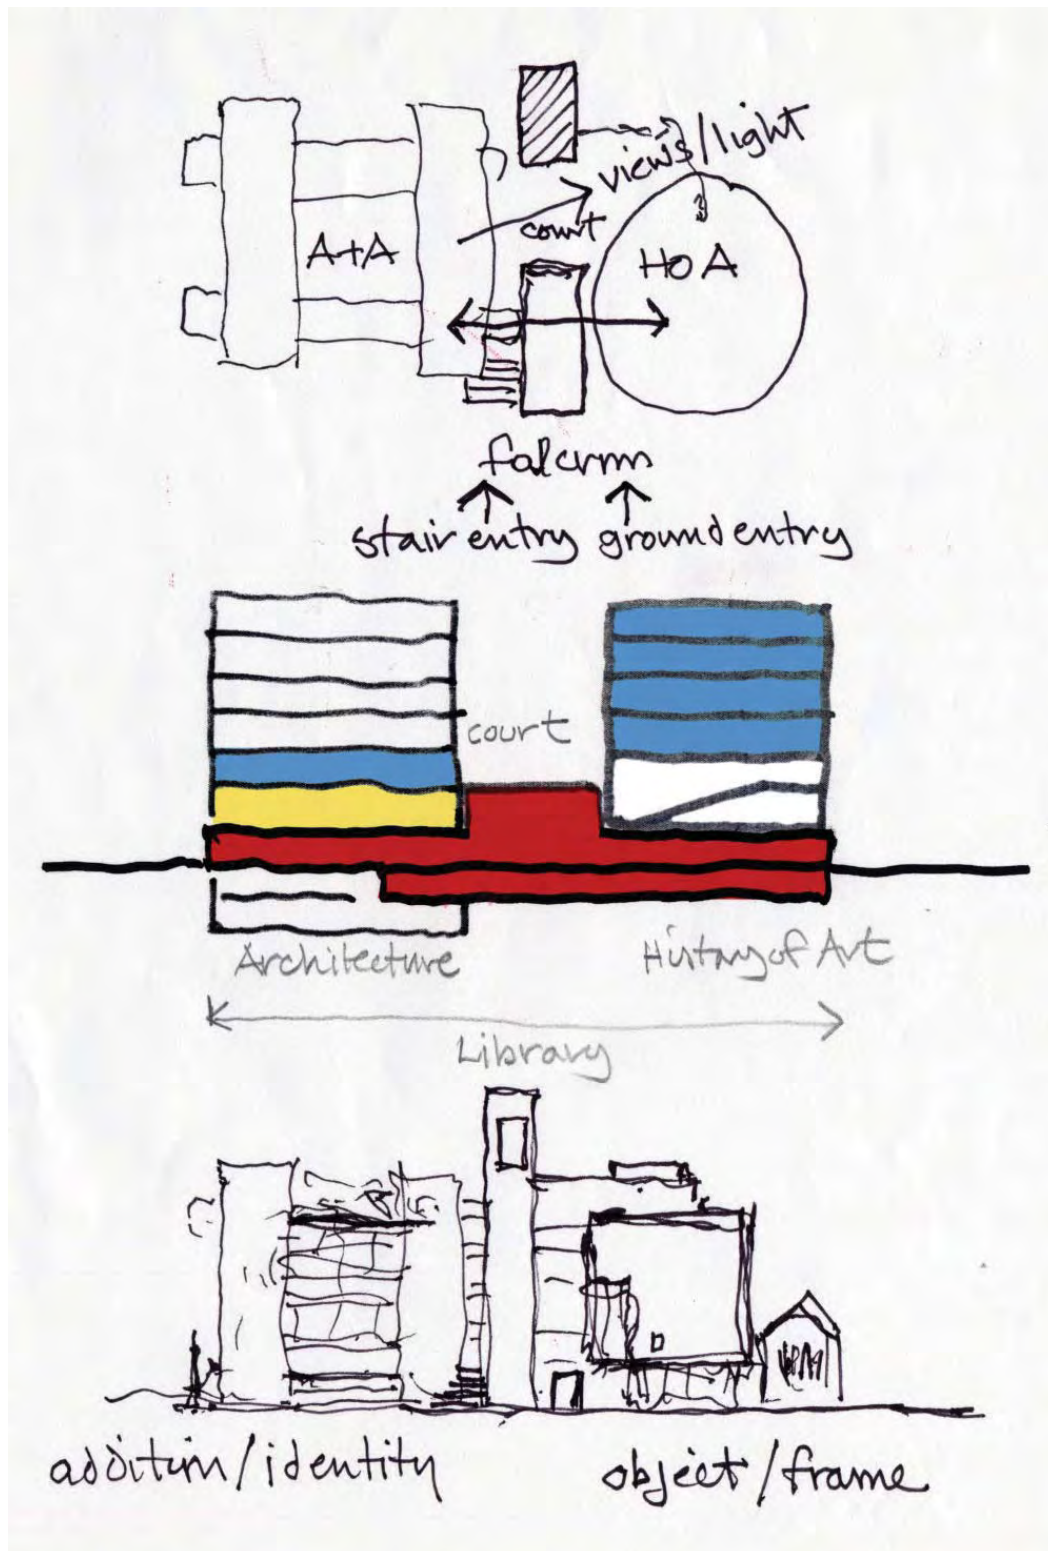 views/light
court
A+A
HOA
falcrum
stair entry ground entry
court
Architecture
History of Art
Library
addition/identity
object/frame